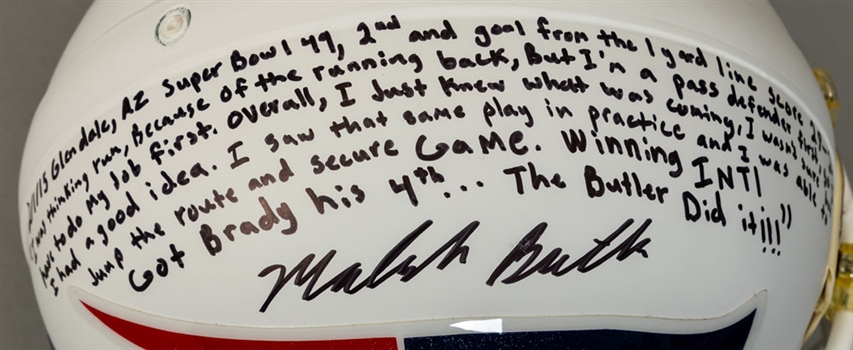 2/1/15 Glendale, AZ Super Bowl 49, 2nd and goal from the 1 yard line score
"I was thinking run, Because of the running back, But I'm a pass defender first,
have to do My Job first. Overall, I Just knew what was coming, I wasn't sure
I had a good idea. I saw that same play in practice and I was able to
Jump the route and secure GaME. Winning INT!
Got Brady his 4th... The Butler Did it!!!"
Malcolm Butler